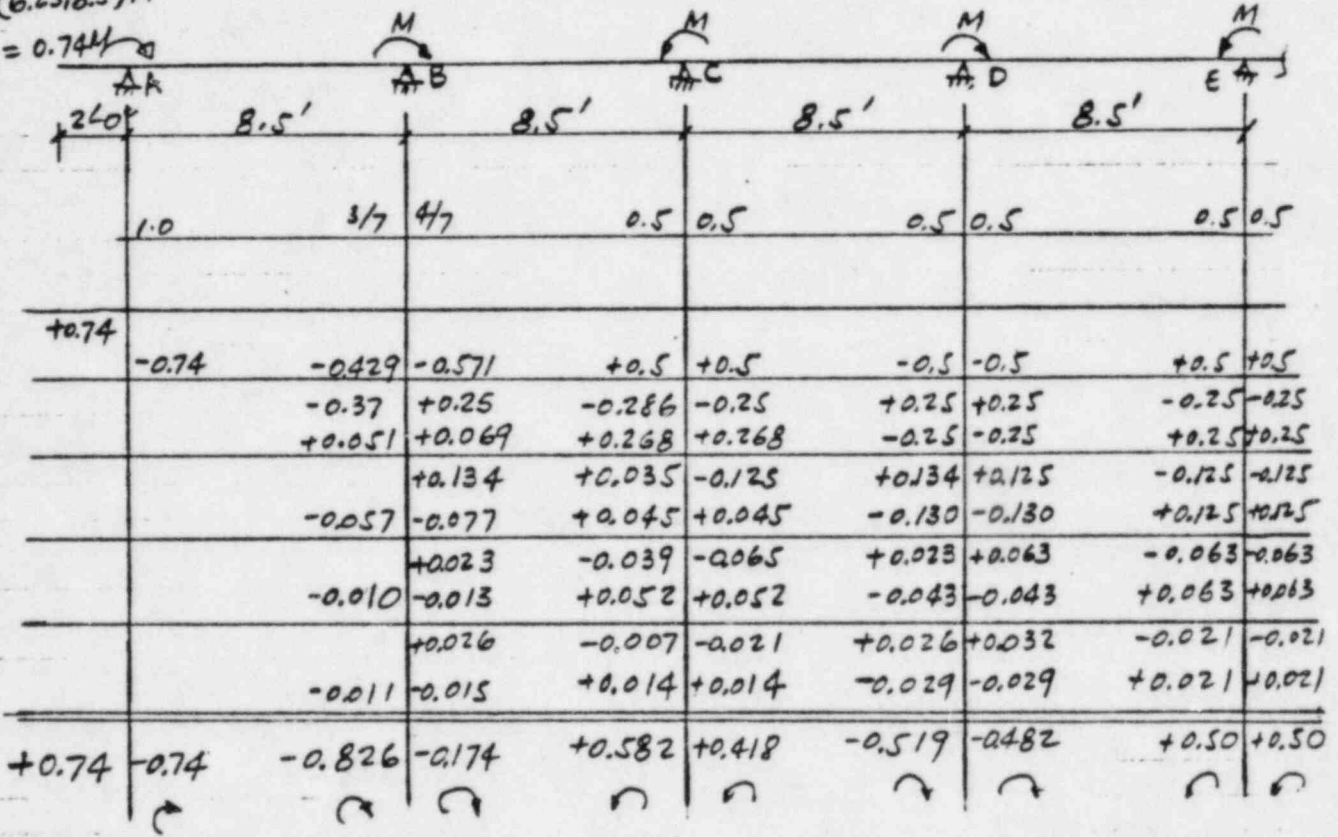 = 0.74M
M M M M
A B C D E
2'-0" 8.5' 8.5' 8.5' 8.5'
1.0 3/7 4/7 0.5 0.5 0.5 0.5 0.5 0.5
+0.74
-0.74 -0.429 -0.571 +0.5 +0.5 -0.5 -0.5 +0.5 +0.5
-0.37 +0.25 -0.286 -0.25 +0.25 +0.25 -0.25 -0.25
+0.051 +0.069 +0.268 +0.268 -0.25 -0.25 +0.25 +0.25
+0.134 +0.035 -0.125 +0.134 +0.125 -0.125 -0.125
-0.057 -0.077 +0.045 +0.045 -0.130 -0.130 +0.125 +0.125
+0.023 -0.039 -0.065 +0.023 +0.063 -0.063 -0.063
-0.010 -0.013 +0.052 +0.052 -0.043 -0.043 +0.063 +0.063
+0.026 -0.007 -0.021 +0.026 +0.032 -0.021 -0.021
-0.011 -0.015 +0.014 +0.014 -0.029 -0.029 +0.021 +0.021
+0.74 -0.74 -0.826 -0.174 +0.582 +0.418 -0.519 -0.482 +0.50 +0.50